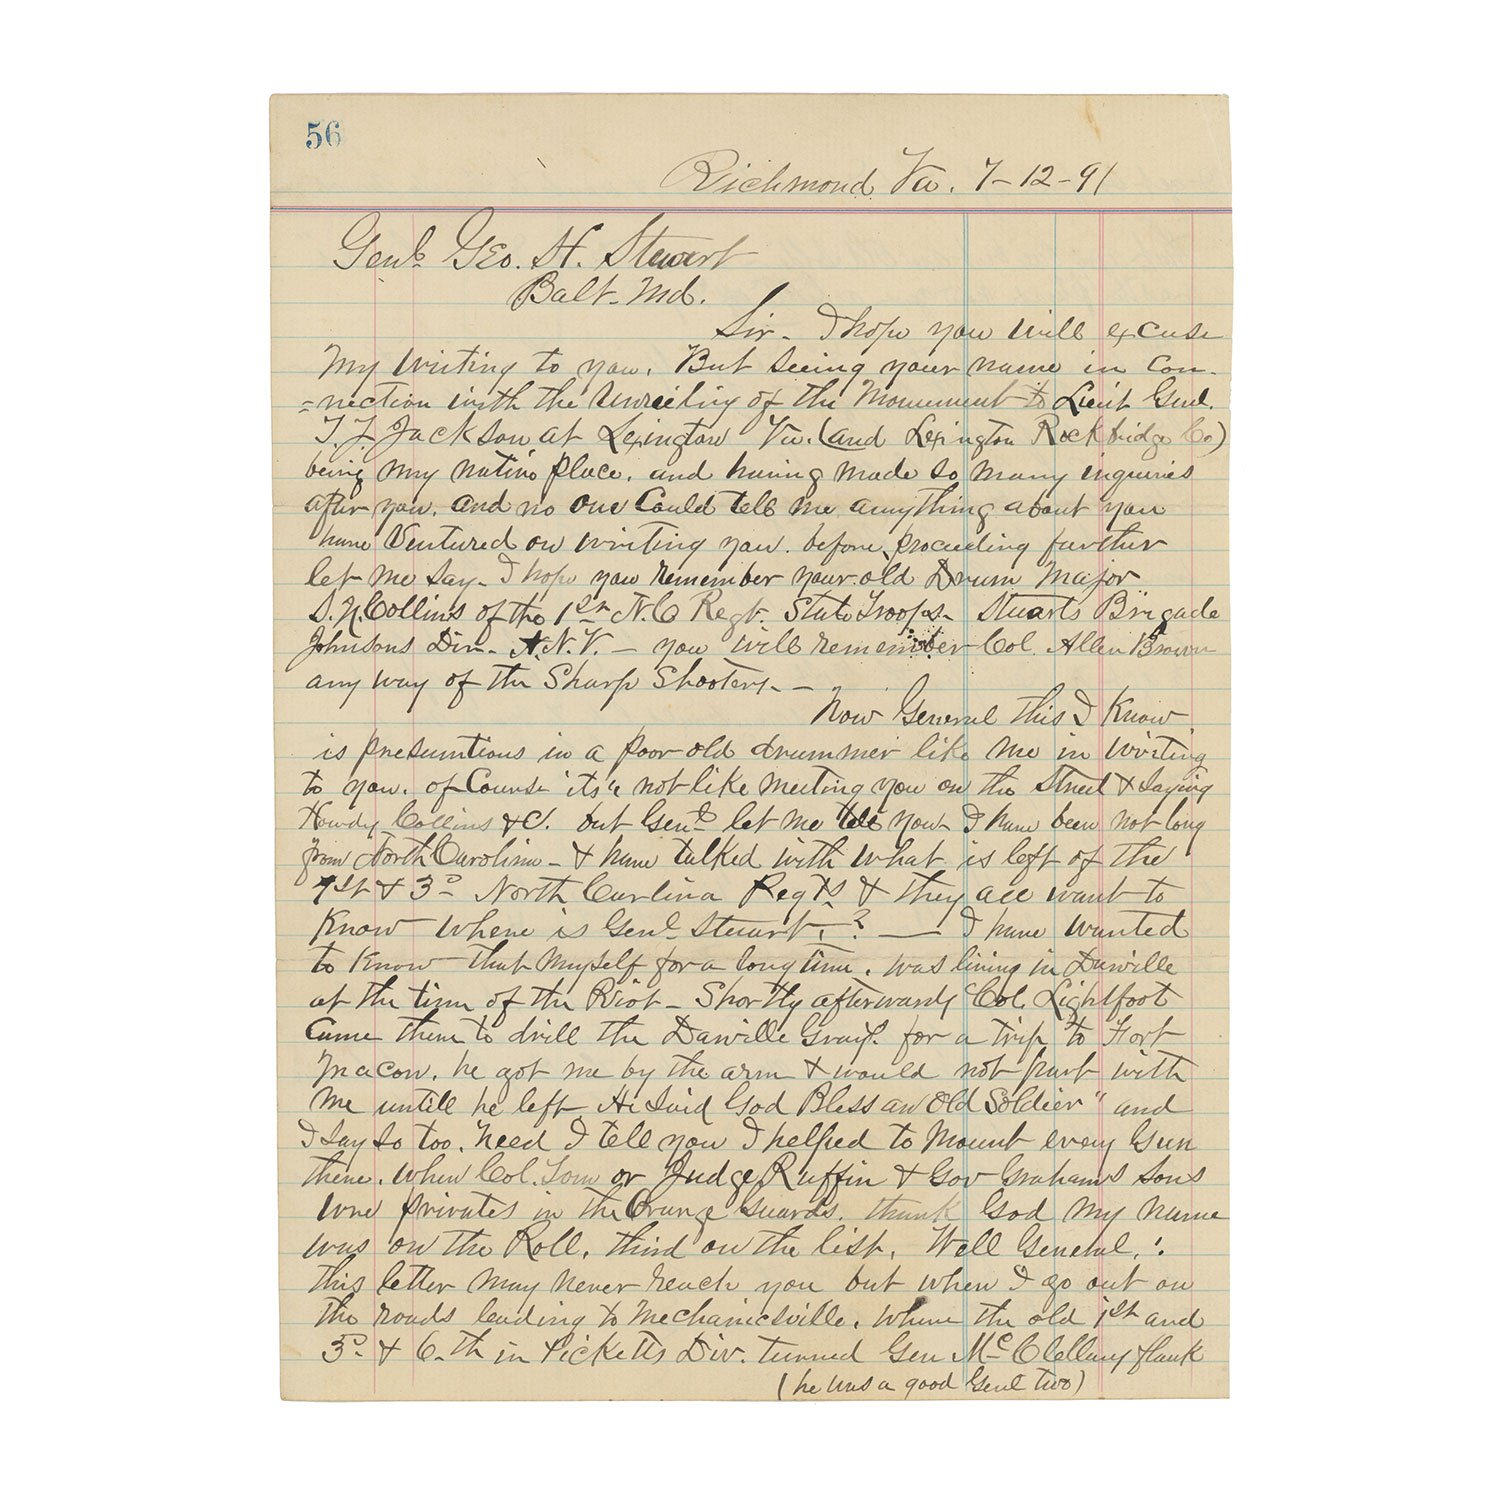 56
Richmond Va. 7-12-91
Genl. Geo. H. Stewart
Balt. Md.
Sir - I hope you will excuse
My writing to you. But seeing your name in con-
=nection with the Unveiling of the Monument to Lieut Genl.
T. J. Jackson at Lexington Va. (and Lexington Rockbridge Co)
being my native place. and having made so many inquiries
after you. and no one Could tell me anything about you
have Ventured on writing you. before proceeding further
let me say - I hope you remember your old Drum Major
D. N. Collins of the 1st N.C Regt. State Troops - Stuarts Brigade
Johnsons Div - A. N. V. - you will remember Col. Allen Brown
any way of the Sharp Shooters. -
Now General this I Know
is presumtious in a poor old drummer like me in writing
to you. of Course its not like meeting you on the Street & saying
Howdy Collins &C. but Genl let me tell you I have been not long
from North Carolina - & have talked with what is left of the
1st & 3d North Carlina Regts & they all want to
Know where is Genl Steuart. ? — I have wanted
to Know that myself for a long time. was living in Danville
at the time of the Riot - Shortly afterwards Col. Lightfoot
Came there to drill the Danville Grays. for a trip to Fort
Macon. he got me by the arm & would not part with
me untill he left. He Said God Bless an Old Soldier" and
I say so too. Need I tell you I helped to Mount every Gun
there. when Col. Tom or Judge Ruffin & Gov Grahams sons
were privates in the Orange Guards. thank God my name
was on the Roll. third on the list. Well General. !.
this letter may never reach you but when I go out on
the roads leading to Mechanicsville. where the old 1st and
3d & 6-th in Picketts Div. turned Gen McClellans flank
(he was a good Genl two)